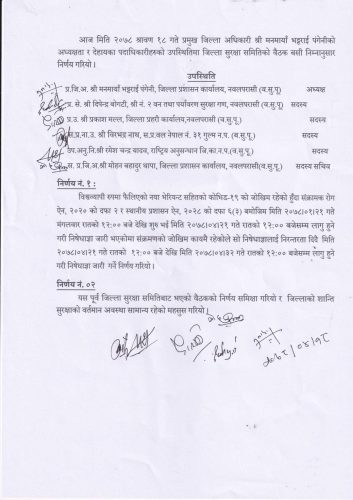 आज मिति २०७८ श्रावण १८ गते प्रमुख जिल्ला अधिकारी श्री मनमायाँ भट्टराई पंगेनीको
अध्यक्षता र देहायका पदाधिकारीहरुको उपस्थितिमा जिल्ला सुरक्षा समितिको बैठक बसी निम्नानुसार
निर्णय गरियो ।
उपस्थिति
प्र.जि.अ. श्री मनमायाँ भट्टराई पंगेनी, जिल्ला प्रशासन कार्यालय, नवलपरासी (ब.सु.पू.) अध्यक्ष
प्र. से. श्री दिपेन्द्र बोगटी, श्री नं. २ वन तथा पर्यावरण सुरक्षा गण, नवलपरासी(ब.सु.पू.) सदस्य
प्र.उ. श्री प्रकाश मल्ल, जिल्ला प्रहरी कार्यालय,नवलपरासी (ब.सु.पू.) सदस्य
स.प्र.ना.उ. श्री विरभद्र नाथ, स.प्र.वल नेपाल नं. ३१ गुल्म न.प. (ब.सु.पू.) सदस्य
उप.अनु.नि.श्री रमेश चन्द्र यादव, राष्ट्रिय अनुसन्धान जि.का.न.प.(ब.सु.पू.) सदस्य
स. प्र.जि.अ.श्री मोहन बहादुर थापा, जिल्ला प्रशासन कार्यालय,नवलपरासी(ब.सु.पू.) सदस्य सचिव
निर्णय नं. १ :
विश्वव्यापी रुपमा फैलिएको नया भेरियन्ट सहितको कोभिड-१९ को जोखिम रहेको हुँदा संक्रामक रोग
ऐन, २०२० को दफा २ र स्थानीय प्रशासन ऐन, २०२८ को दफा ६(३) बमोजिम मिति २०७८।०१।२१ गते
मंगलवार रातको १२:०० बजे देखि शुरु भई मिति २०७८।०४।२१ गते रातको १२:०० बजेसम्म लागु हुने
गरी निषेधाज्ञा जारी भएकोमा संक्रमणको जोखिम कायमै रहेकोले सो निषेधाज्ञालाई निरन्तरता दिदै मिति
२०७८।०४।२१ गते रातको १२:०० बजे देखि मिति २०७८।०४।३२ गते रातको १२:०० बजेसम्म लागु हुने
गरी निषेधाज्ञा जारी गर्ने निर्णय गरियो ।
निर्णय नं. ०२
यस पूर्व जिल्ला सुरक्षा समितिबाट भएको बैठकको निर्णय समिक्षा गरियो र जिल्लाको शान्ति
सुरक्षाको वर्तमान अवस्था सामान्य रहेको महसुस गरियो ।
२०७८/०४/१८